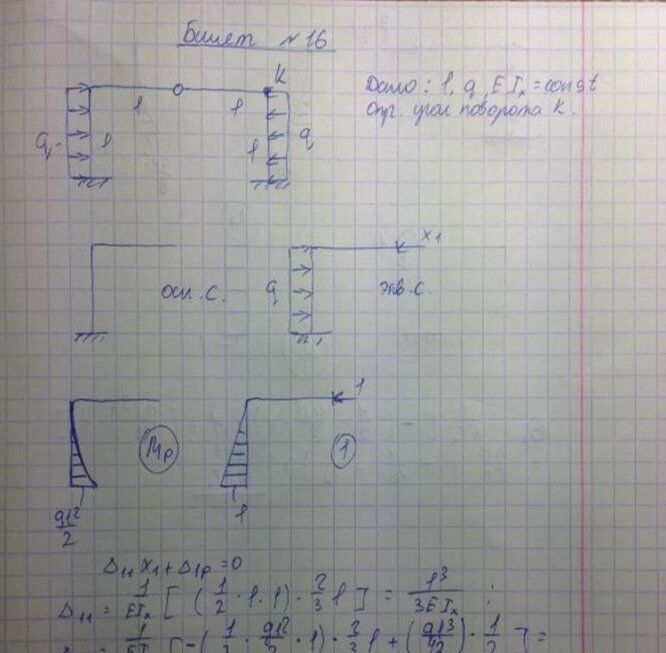 Билет №16
K
Дано: l, q, EIx = const
Опр. угол поворота K.
l l
q l l q
x1
осн. с. q экв. с.
1
Mp 1
ql²/2 l
Δ11 x1 + Δ1p = 0
Δ11 = 1/EIx [ (1/2 · l · l) · 2/3 l ] = l³/3EIx ;
[ -( · ql²/2 · l) · 2/3 l + ( ) · 1/2 ] =